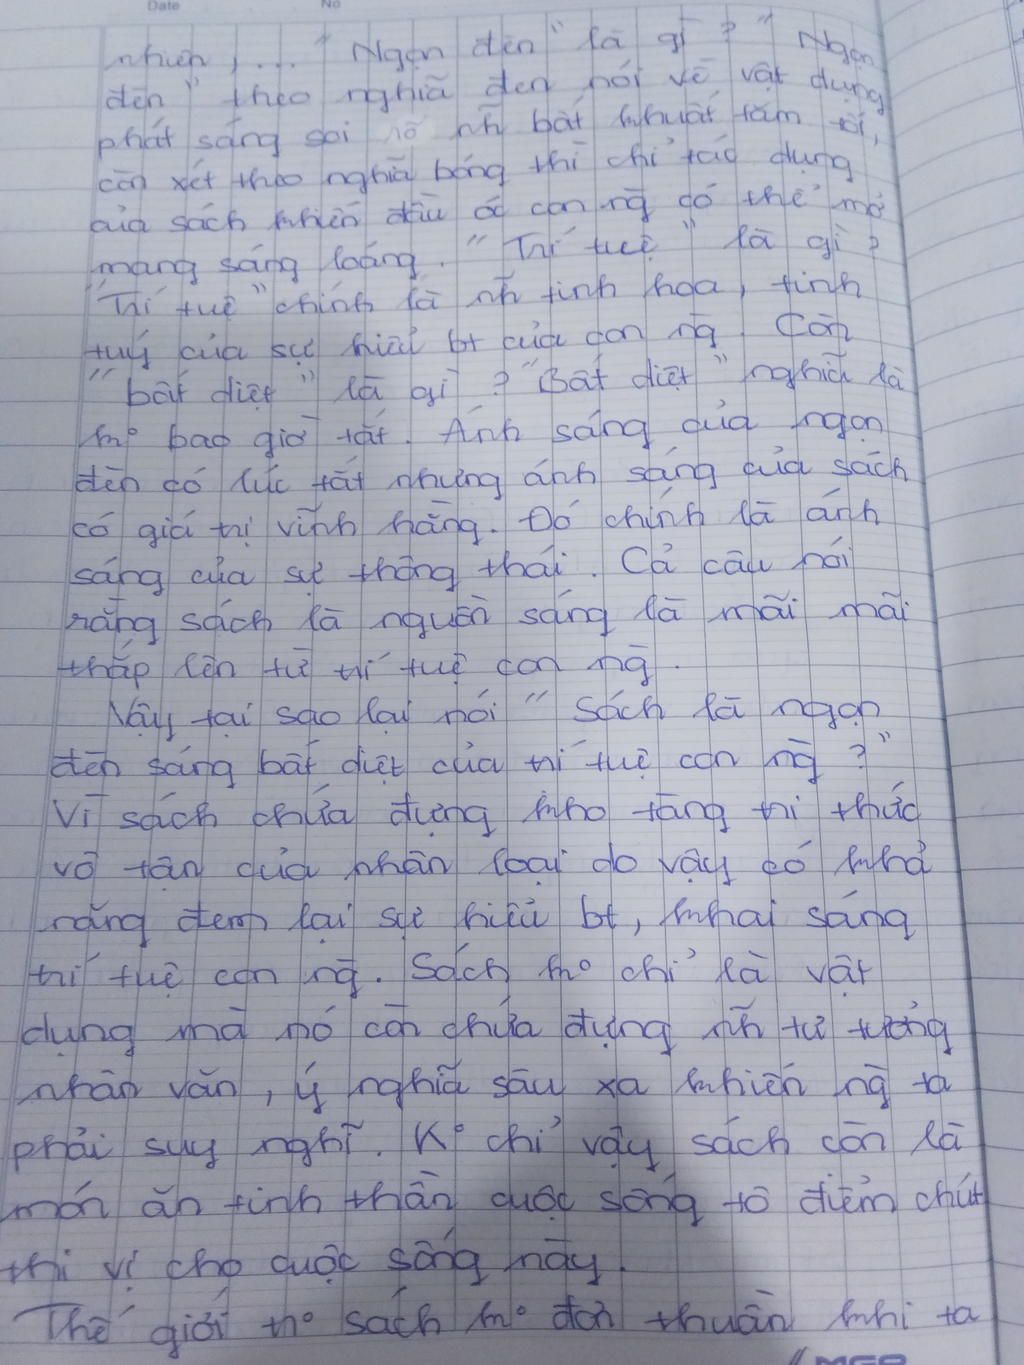 Date No
nhiên, ... "Ngọn đèn" là gì? "Ngọn
đèn" theo nghĩa đen nói về vật dụng
phát sáng soi rõ nh~ bất khuất tăm tối,
còn xét theo nghĩa bóng thì chỉ tác dụng
của sách khiến đầu óc con ng` có thể mở
mang sáng loáng. "Trí tuệ" là gì?
"Trí tuệ" chính là nh~ tinh hoa, tinh
tuý của sự hiểu bt của con ng`. Còn
"bất diệt" là gì? "Bất diệt" nghĩa là
k° bao giờ tắt. Ánh sáng của ngọn
đèn có lúc tắt nhưng ánh sáng của sách
có giá trị vĩnh hằng. Đó chính là ánh
sáng của sự thông thái. Cả câu nói
rằng sách là nguồn sáng là mãi mãi
thắp lên từ trí tuệ con ng`.
Vậy tại sao lại nói "Sách là ngọn
đèn sáng bất diệt của trí tuệ con ng`?"
Vì sách chứa đựng kho tàng tri thức
vô tận của nhân loại do vậy có khả
năng đem lại sự hiểu bt, khai sáng
trí tuệ con ng`. Sách k° chỉ là vật
dụng mà nó còn chứa đựng nh~ tư tưởng
nhân văn, ý nghĩa sâu xa khiến ng` ta
phải suy nghĩ. K° chỉ vậy sách còn là
món ăn tinh thần cuộc sống tô điểm chút
thi vị cho cuộc sống này.
Thế giới tr° sách k° đơn thuần khi ta